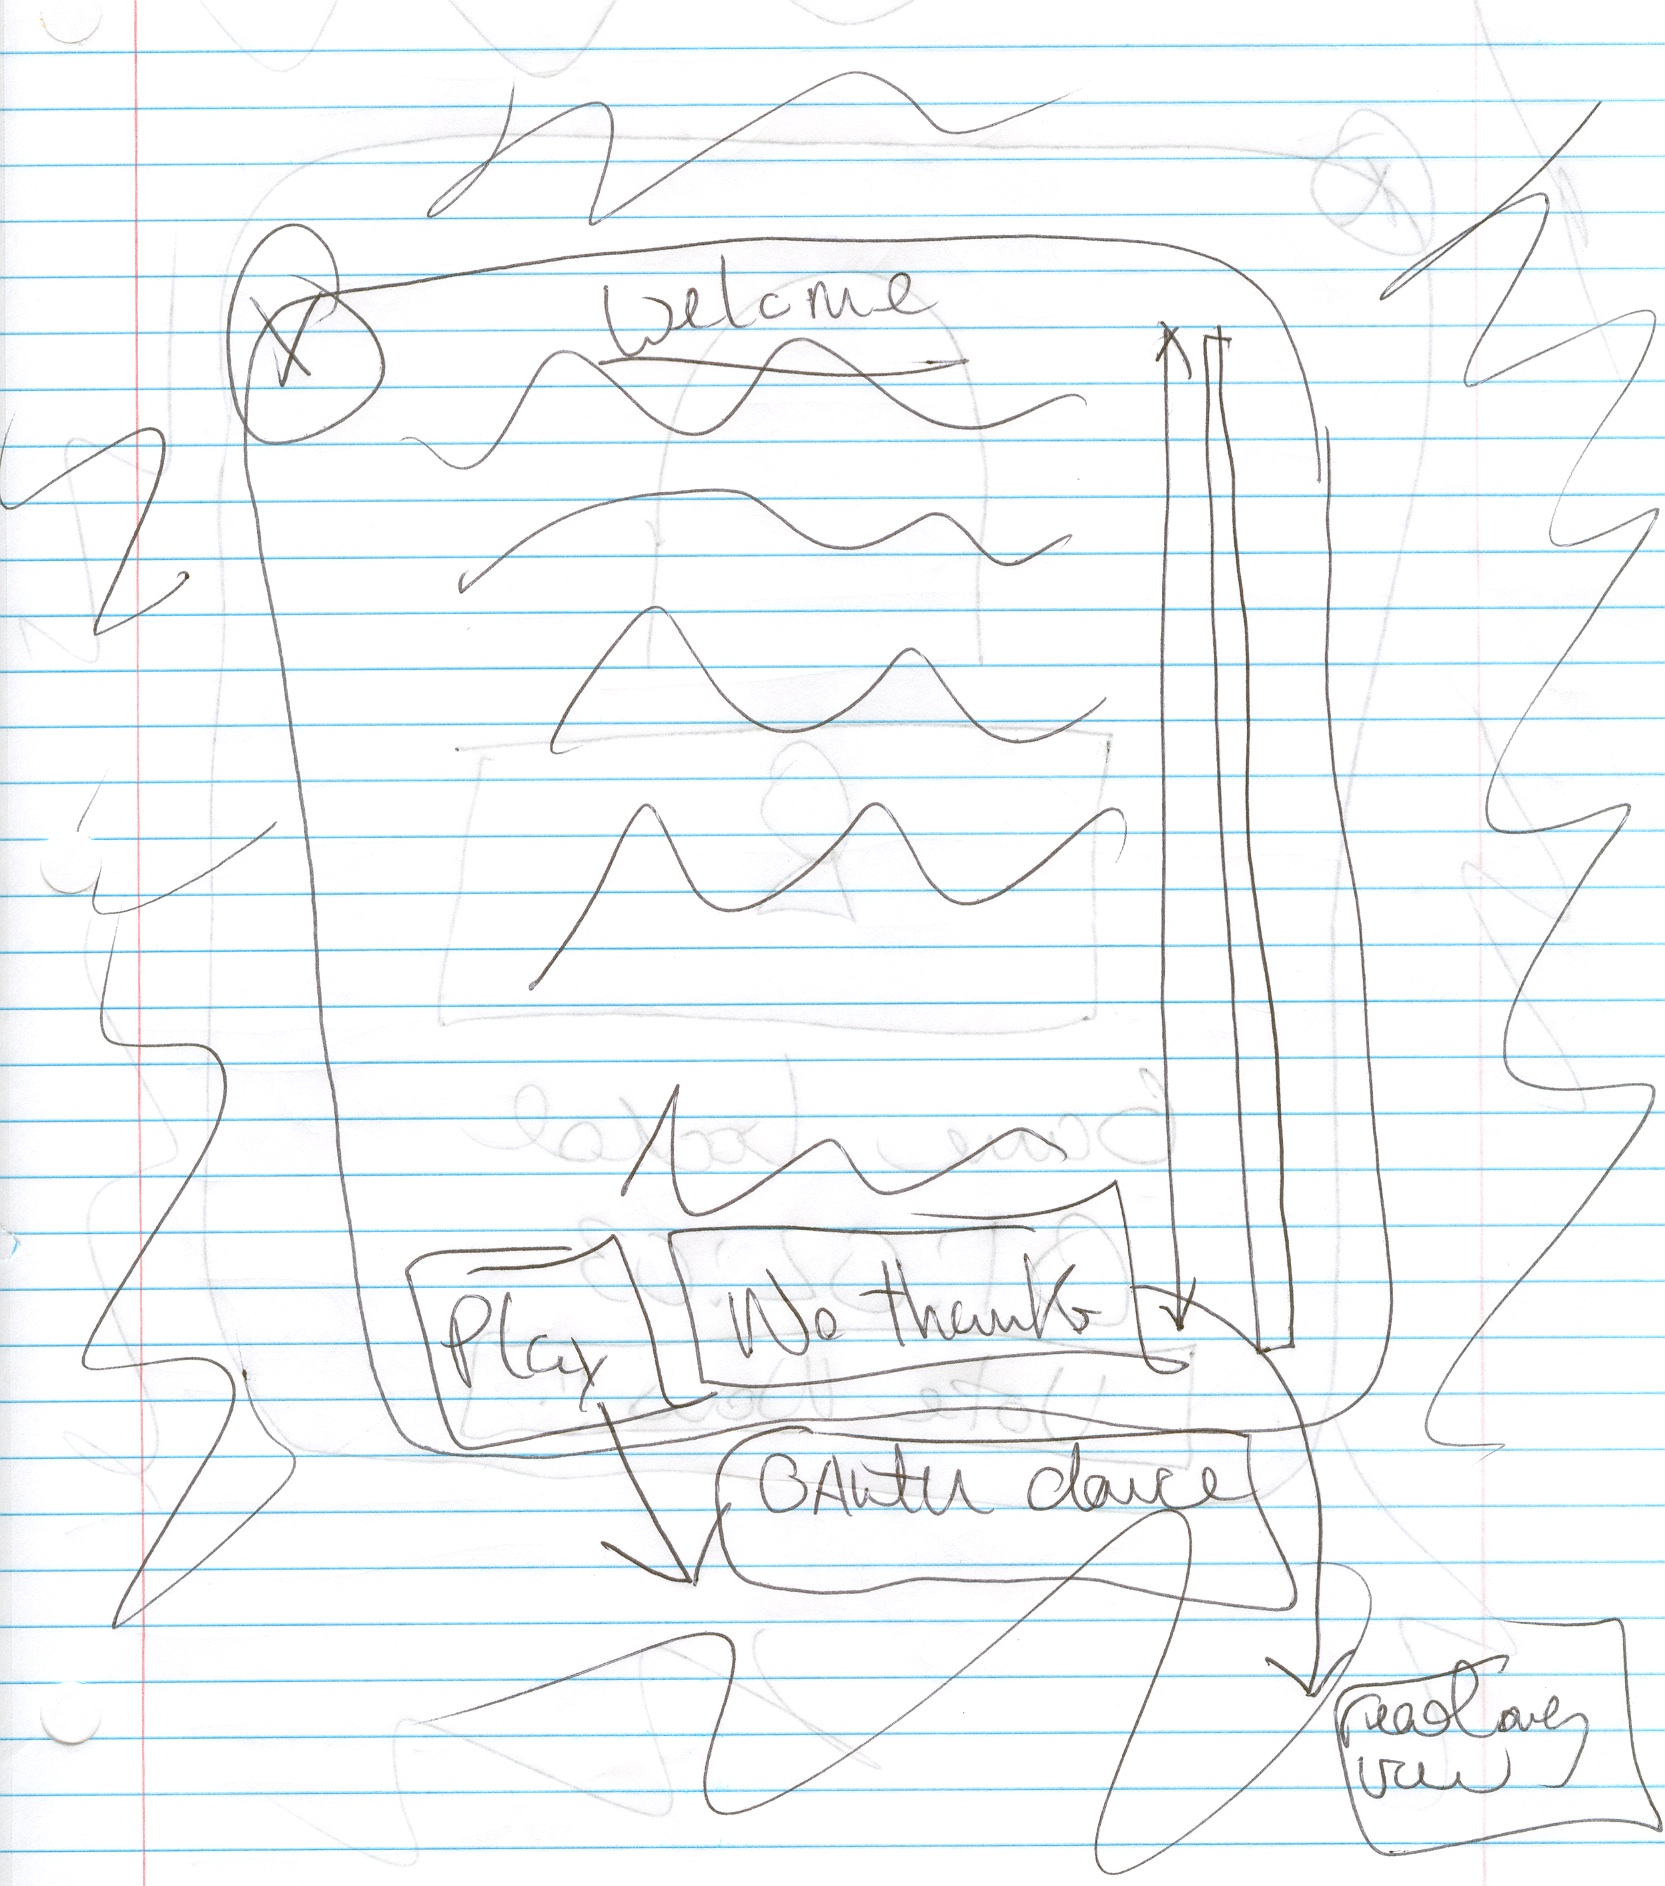 X
Welcome
Play
No thanks
OAuth dance
read only
view